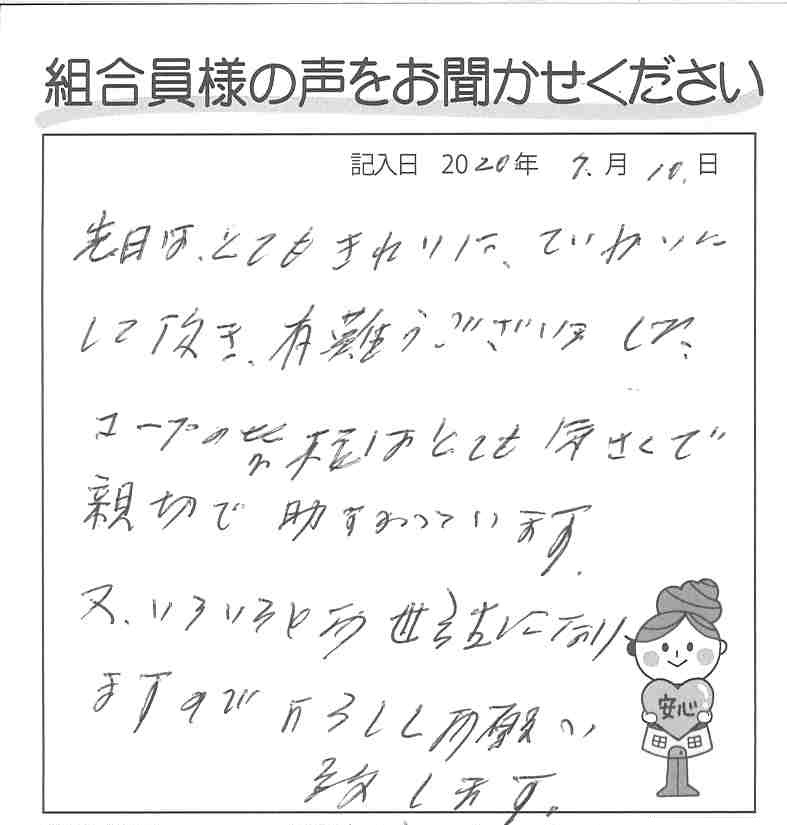 組合員様の声をお聞かせください
記入日 2020年 7.月 10.日
先日は、とてもきれいに、ていねいに
して頂き、有難うございました、
コープの皆様はとても気さくで
親切で助すかっています.
又、いろいろとお世話になり
ますので宜ろしくお願い
致します。
安心